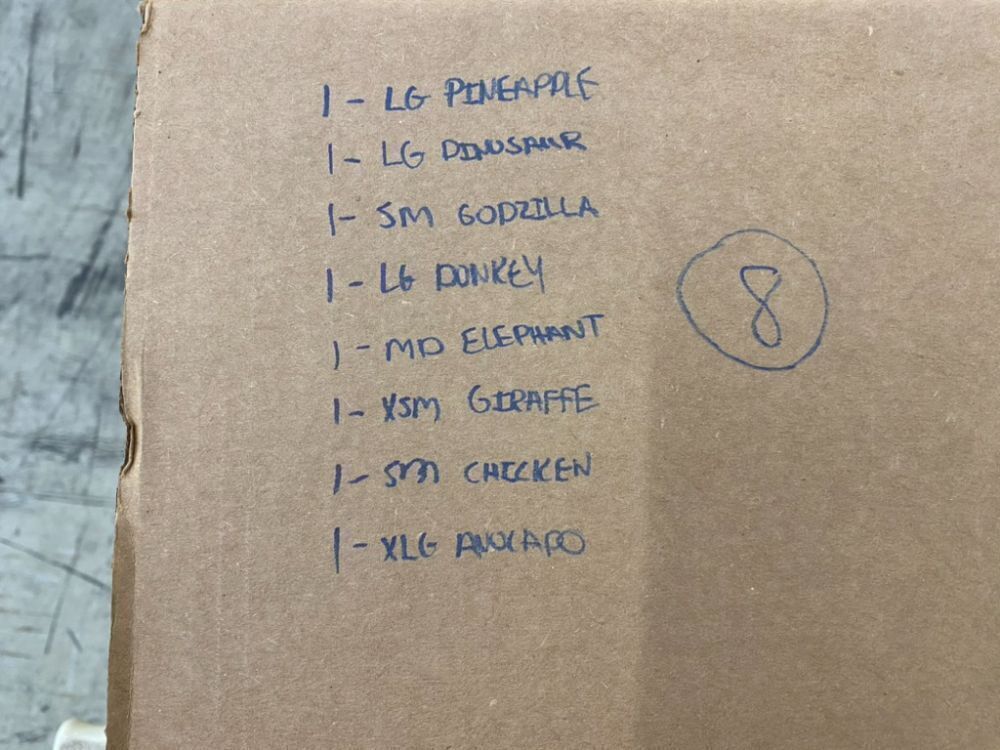 1 - LG PINEAPPLE
1 - LG DINOSAUR
1 - SM GODZILLA
1 - LG DONKEY
8
1 - MD ELEPHANT
1 - XSM GIRAFFE
1 - SM CHICKEN
1 - XLG AVOCADO